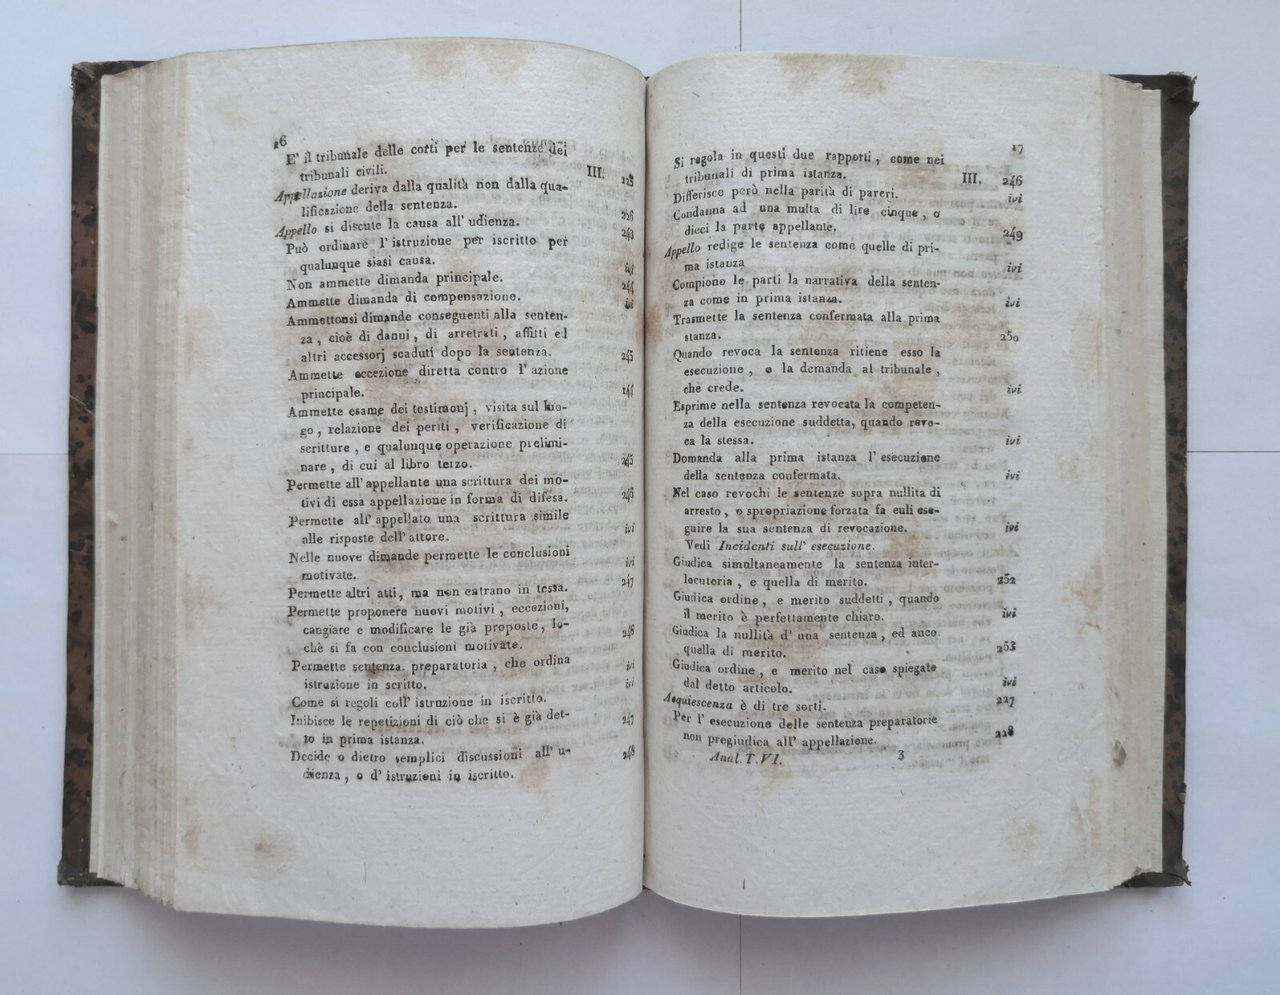 16
E' il tribunale delle corti per le sentenze dei
tribunali civili. III. 228
Appellazione deriva dalla qualità non dalla qua-
lificazione della sentenza. 226
Appello si discute la causa all' udienza. 243
Può ordinare l' istruzione per iscritto per
qualunque siasi causa. ivi
Non ammette dimanda principale. 244
Ammette dimanda di compensazione. ivi
Ammettonsi dimande conseguenti alla senten-
za, cioè di danni, di arretrati, affitti ed
altri accessorj scaduti dopo la sentenza. 245
Ammette eccezione diretta contro l' azione
principale. 144
Ammette esame dei testimonj, visita sul luo-
go, relazione dei periti, verificazione di
scritture, e qualunque operazione prelimi-
nare, di cui al libro terzo. 245
Permette all' appellante una scrittura dei mo-
tivi di essa appellazione in forma di difesa. 246
Permette all' appellato una scrittura simile
alle risposte dell' attore. ivi
Nelle nuove dimande permette le conclusioni
motivate. ivi
Permette altri atti, ma non entrano in tassa. 247
Permette proponere nuovi motivi, eccezioni,
cangiare e modificare le già proposte, lo-
chè si fa con conclusioni motivate. 246
Permette sentenza preparatoria, che ordina
istruzione in scritto. ivi
Come si regoli coll' istruzione in iscritto. ivi
Inibisce le repetizioni di ciò che si è già det-
to in prima istanza. 247
Decide o dietro semplici discussioni all' u-
dienza, o d' istruzioni in iscritto. 248
17
Si regola in questi due rapporti, come nei
tribunali di prima istanza. III. 246
Differisce però nella parità di pareri. ivi
Condanna ad una multa di lire cinque, o
dieci la parte appellante. 249
Appello redige le sentenza come quelle di pri-
ma istanza ivi
Compiono le parti la narrativa della senten-
za come in prima istanza. ivi
Trasmette la sentenza confermata alla prima
stanza. 250
Quando revoca la sentenza ritiene esso la
esecuzione, o la demanda al tribunale,
che crede. ivi
Esprime nella sentenza revocata la competen-
za della esecuzione suddetta, quando revo-
ca la stessa. ivi
Domanda alla prima istanza l' esecuzione
della sentenza confermata. ivi
Nel caso revochi le sentenze sopra nullita di
arresto, o spropriazione forzata fa euli ese-
guire la sua sentenza di revocazione. ivi
Vedi Incidenti sull' esecuzione.
Giudica simultaneamente la sentenza inter-
locutoria, e quella di merito. 252
Giudica ordine, e merito suddetti, quando
il merito è perfettamente chiaro. ivi
Giudica la nullità d' una sentenza, ed anco
quella di merito. 253
Giudica ordine, e merito nel caso spiegato
dal detto articolo. ivi
Acquiescenza è di tre sorti. 227
Per l' esecuzione delle sentenza preparatorie
non pregiudica all' appellazione. 228
Anal. T. VI. 3